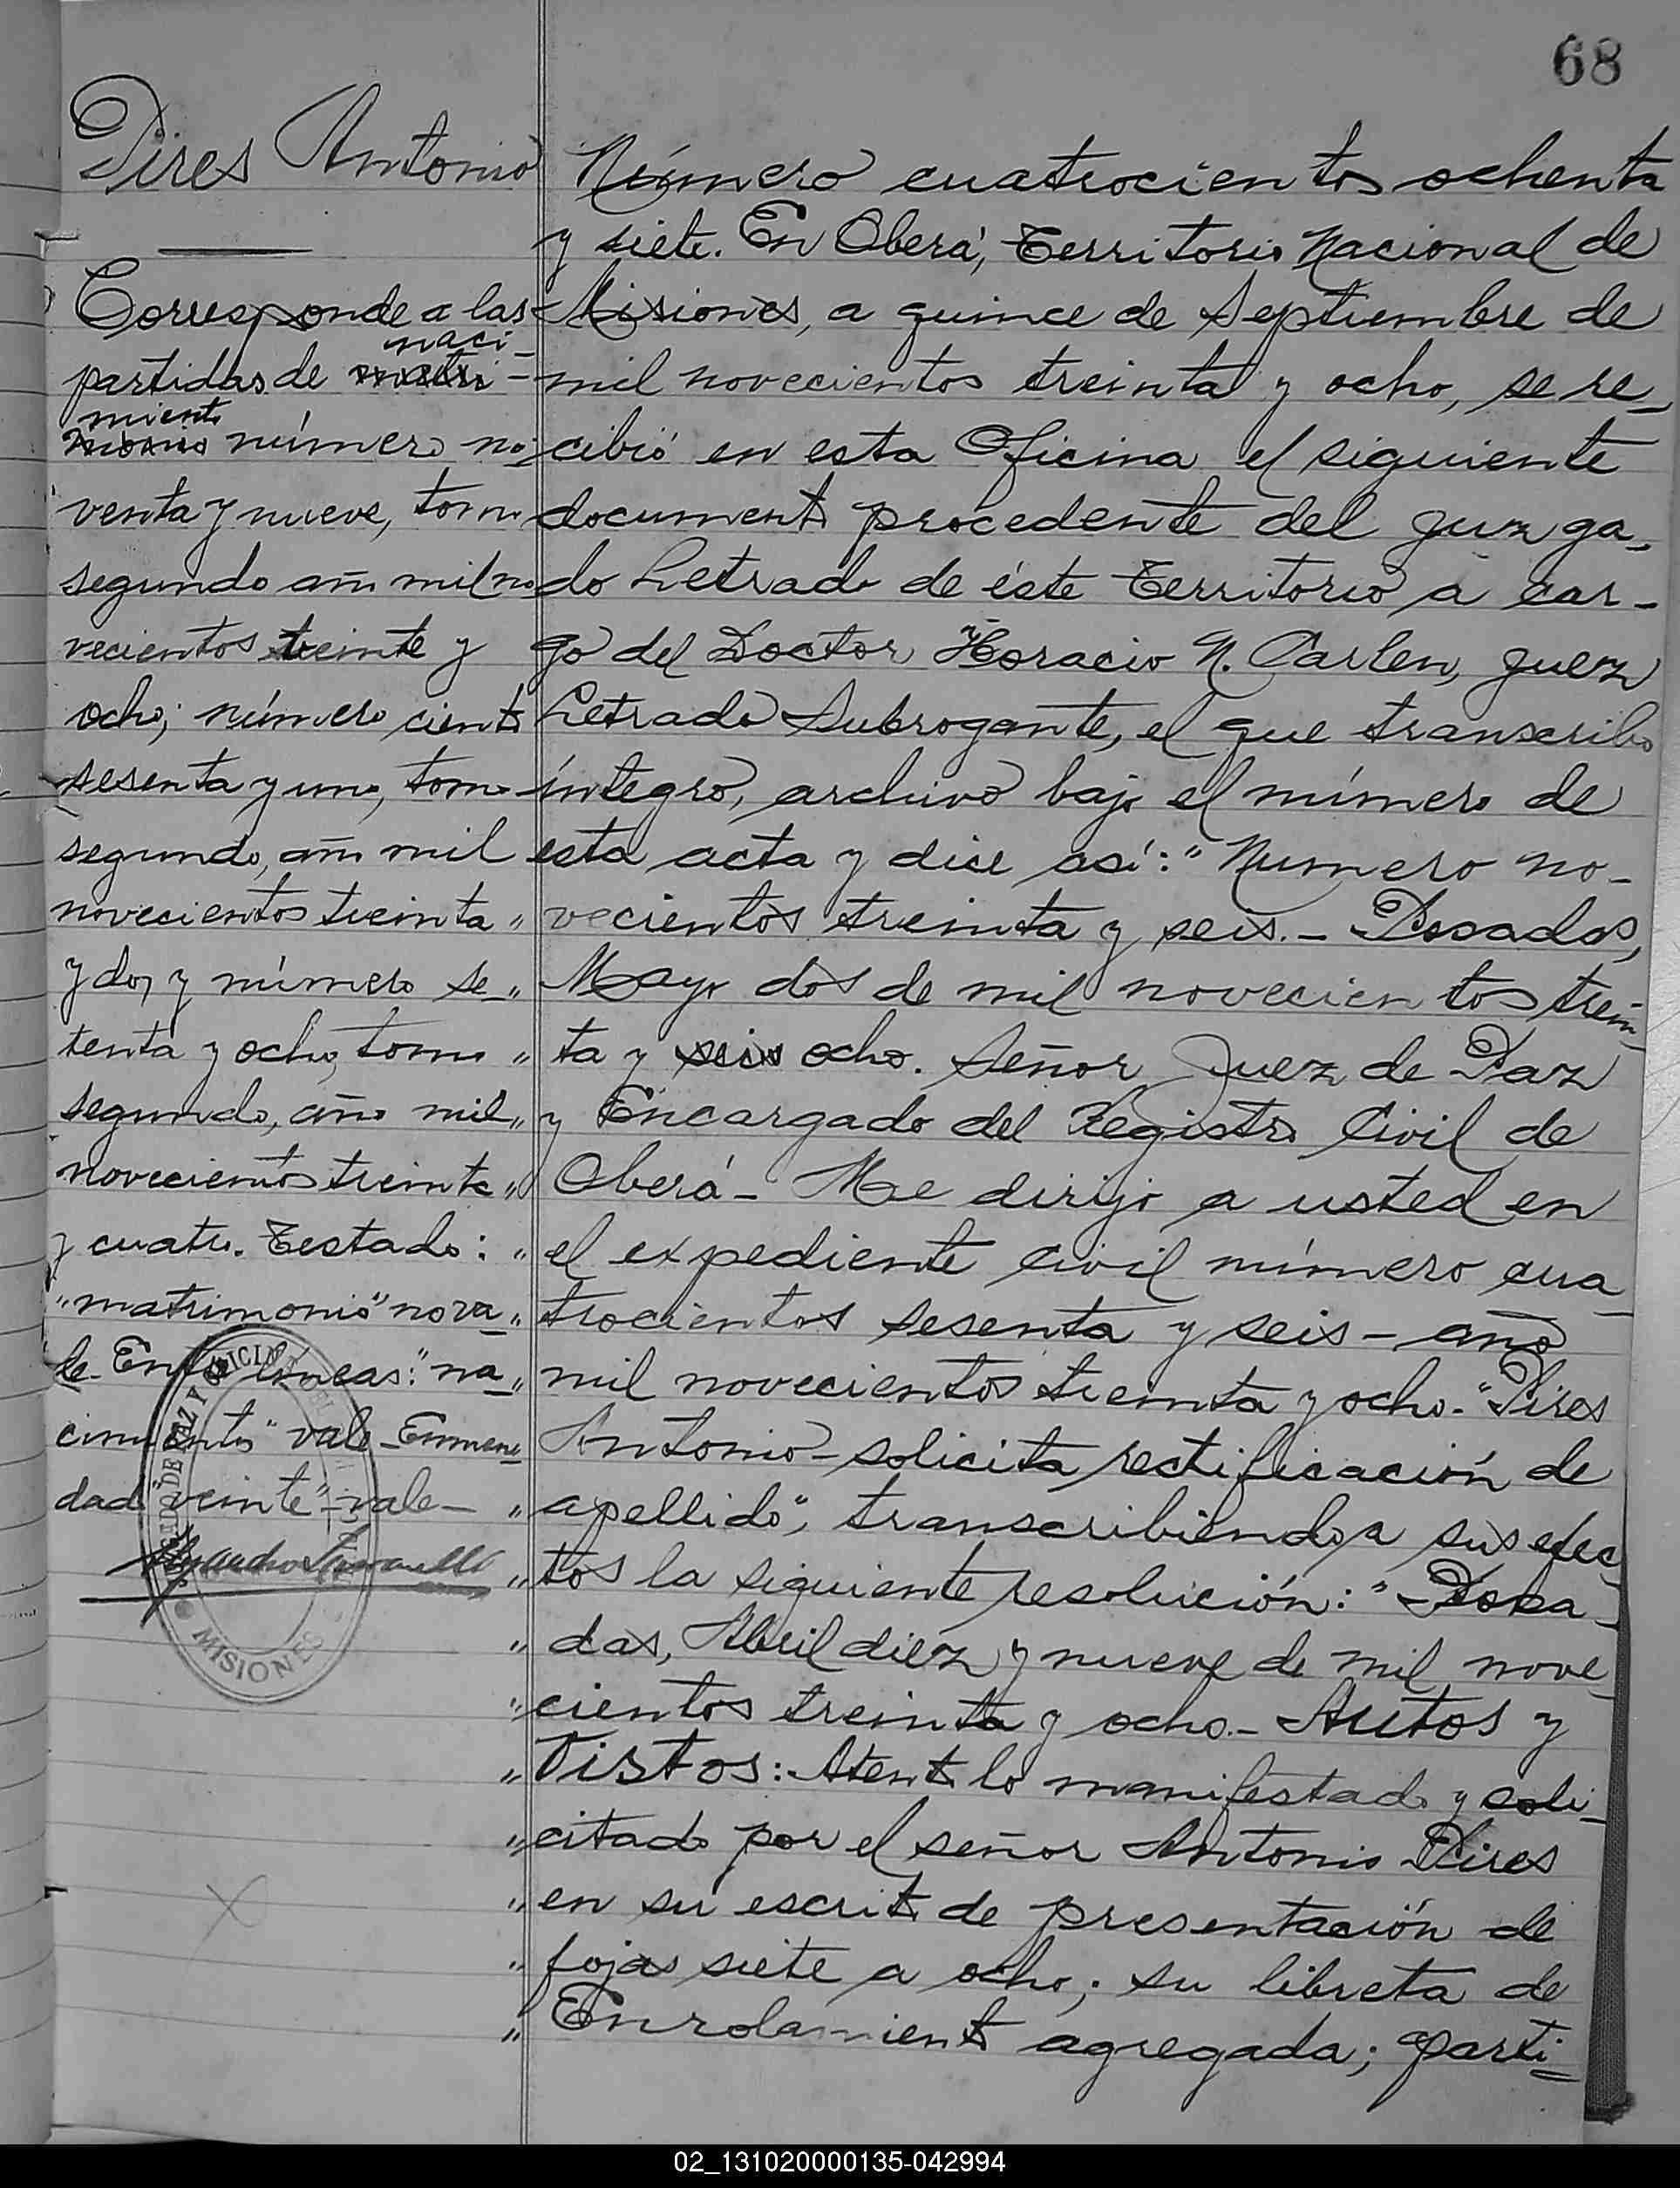 68
Pires Antonio
Corresponde a las
naci-
partidas de matri-
miento
monio número no-
venta y nueve, tomo
segundo año mil no-
vecientos treinta y
ocho; número ciento
sesenta y uno, tomo
segundo, año mil
novecientos treinta
y dos y número se-
tenta y ocho, tomo
segundo, año mil
novecientos treinta
y cuatro. Testado:
"matrimonio" no va-
le. Entre líneas: "na-
cimiento" vale. Enmen-
dado "veinte" - vale -
MISIONES
Número cuatrocientos ochenta
y siete. En Oberá, Territorio Nacional de
Misiones, a quince de Septiembre de
mil novecientos treinta y ocho, se re-
cibió en esta Oficina el siguiente
documento procedente del Juzga-
do Letrado de éste Territorio a car-
go del Doctor Horacio N. Carlen, Juez
Letrado Subrogante, el que transcribo
íntegro, archivo bajo el número de
esta acta y dice así: "Numero no-
" vecientos treinta y seis. - Posadas,
" Mayo dos de mil novecientos trein-
" ta y seis ocho. Señor Juez de Paz
" y Encargado del Registro Civil de
" Oberá - Me dirijo a usted en
" el expediente civil número cua-
" trocientos sesenta y seis - año
" mil novecientos treinta y ocho. "Pires
" Antonio - solicita rectificación de
" apellido", transcribiendo a sus efec-
" tos la siguiente resolución: "Posa-
" das, Abril diez y nueve de mil nove-
" cientos treinta y ocho. - Autos y
" Vistos: Atento lo manifestado y soli-
" citado por el señor Antonio Pires
" en su escrito de presentación de
" fojas siete a ocho; su libreta de
" Enrolamiento agregada; parti-
02_131020000135-042994